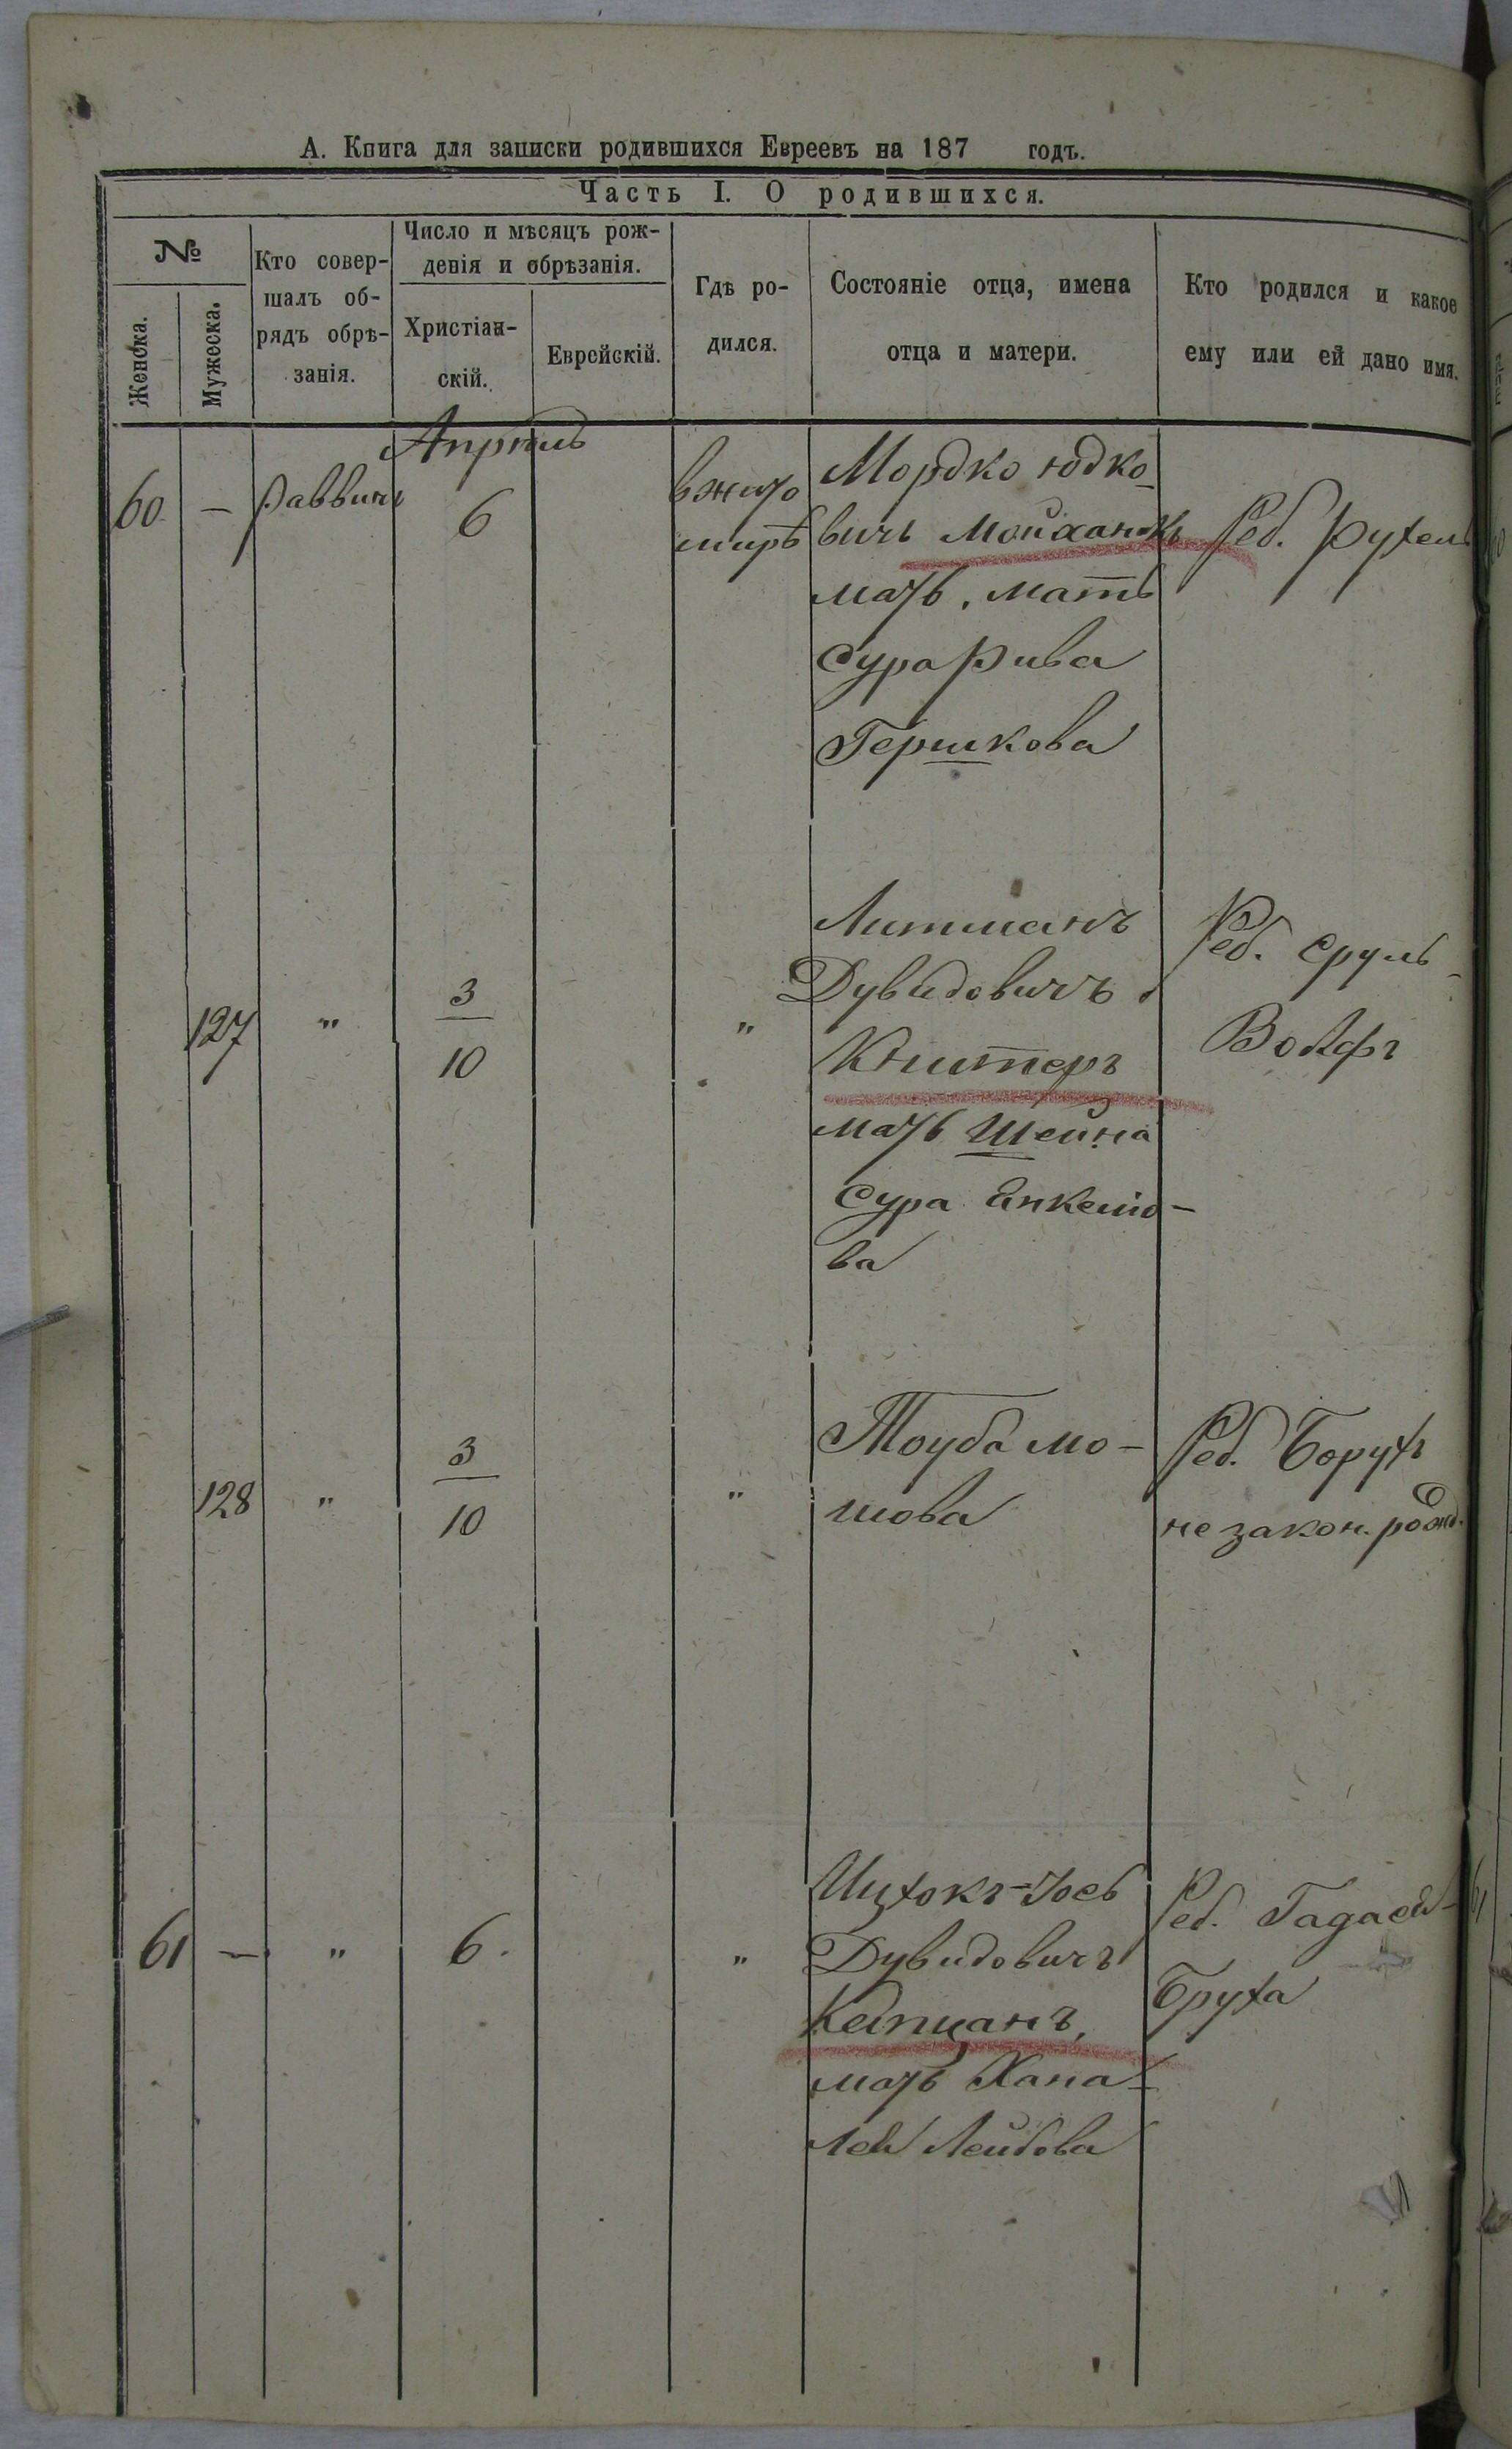 А. Книга для записки родившихся Евреевъ на 187 годъ.
Часть I. О родившихся.
№
Женска.
Мужеска.
Кто совер-
шалъ об-
рядъ обрѣ-
занія.
Число и мѣсяцъ рож-
денія и обрѣзанія.
Христіан-
скій.
Еврейскій.
Гдѣ ро-
дился.
Состояніе отца, имена
отца и матери.
Кто родился и какое
ему или ей дано имя.
Апрѣль
60 — Раввинъ 6
вжито
мирѣ
Мордко Юдко-
вичъ
мать, мать
Сура Рива
Гершкова
Реб. Рухель
127 " 3
10
"
Литманъ
Дувидовичъ
Книтеръ
мать Шейна
Сура Енкелио-
ва
Реб. Сруль-
Волфъ
128 " 3
10
"
Тоуба мо-
шова
Реб. Борухъ
не закон. рожд.
61 — " 6.
"
Ицхокъ-Іось
Дувидовичъ
Капцанъ,
мать Хана-
Лея Лейбова
Реб. Гадася-
Бруха